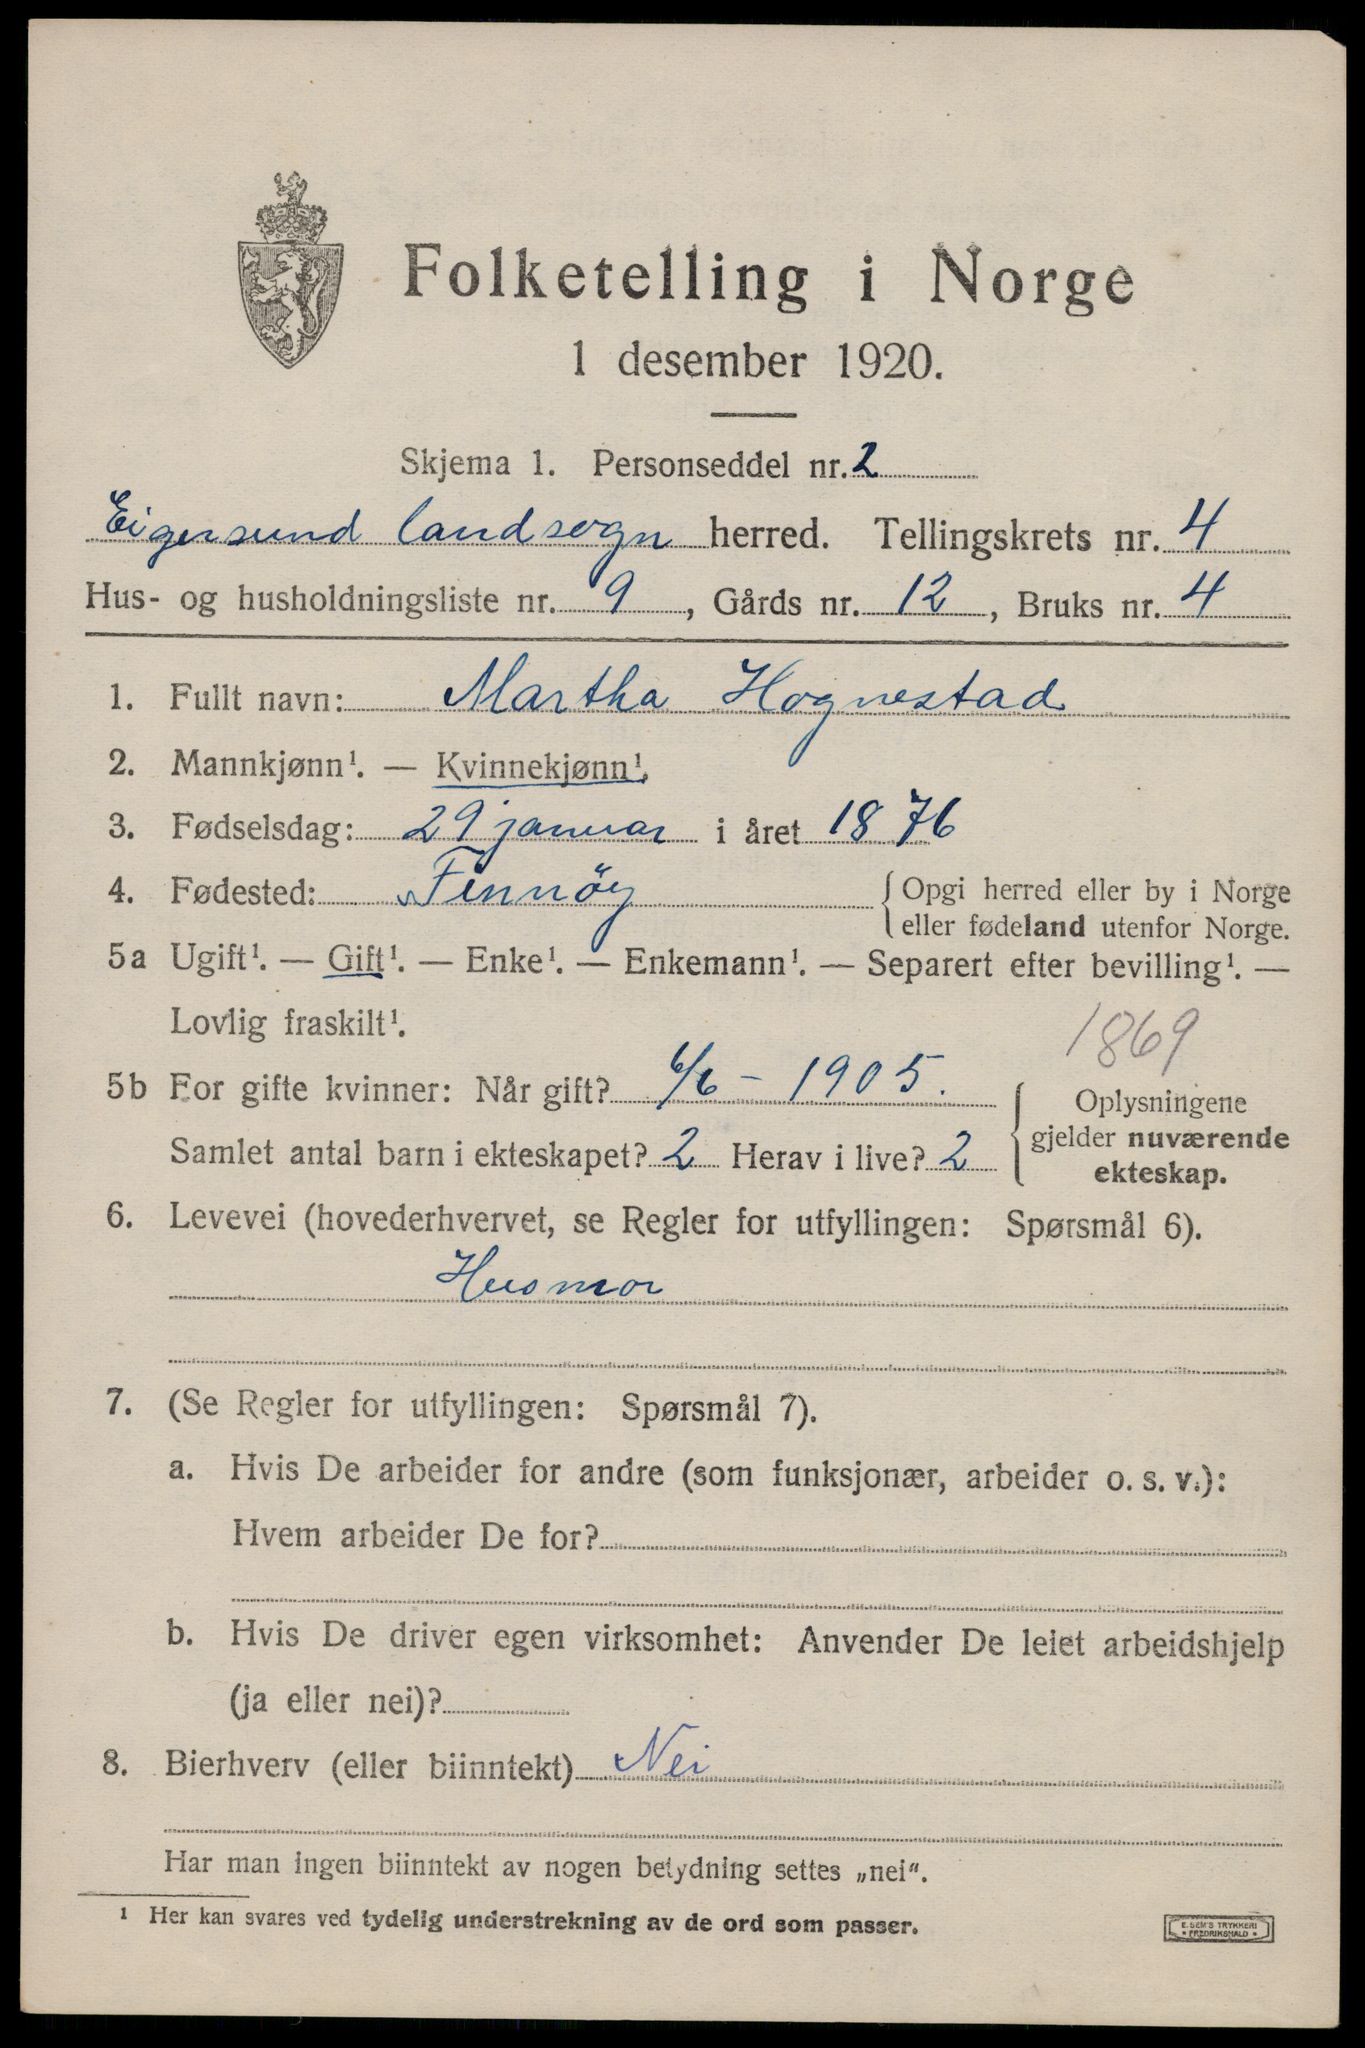 Folketelling i Norge
1 desember 1920.
Skjema 1. Personseddel nr. 2
Eigersund landsogn herred. Tellingskrets nr. 4
Hus- og husholdningsliste nr. 9, Gårds nr. 12, Bruks nr. 4
1. Fullt navn: Martha Hognestad
2. Mannkjønn¹. — Kvinnekjønn¹.
3. Fødselsdag: 29 januar i året 1876
4. Fødested: Finnöy { Opgi herred eller by i Norge
eller fødeland utenfor Norge.
5a Ugift¹. — Gift¹. — Enke¹. — Enkemann¹. — Separert efter bevilling¹. —
Lovlig fraskilt¹.
1869
5b For gifte kvinner: Når gift? 6/6 – 1905. { Oplysningene
gjelder nuværende
Samlet antal barn i ekteskapet? 2 Herav i live? 2
ekteskap.
6. Levevei (hovederhvervet, se Regler for utfyllingen: Spørsmål 6).
Husmor
7. (Se Regler for utfyllingen: Spørsmål 7).
a. Hvis De arbeider for andre (som funksjonær, arbeider o. s. v.):
Hvem arbeider De for?
b. Hvis De driver egen virksomhet: Anvender De leiet arbeidshjelp
(ja eller nei)?
8. Bierhverv (eller biinntekt) Nei
Har man ingen biinntekt av nogen betydning settes „nei“.
¹ Her kan svares ved tydelig understrekning av de ord som passer.
E. SEM'S TRYKKERI
* FREDRIKSHALD *